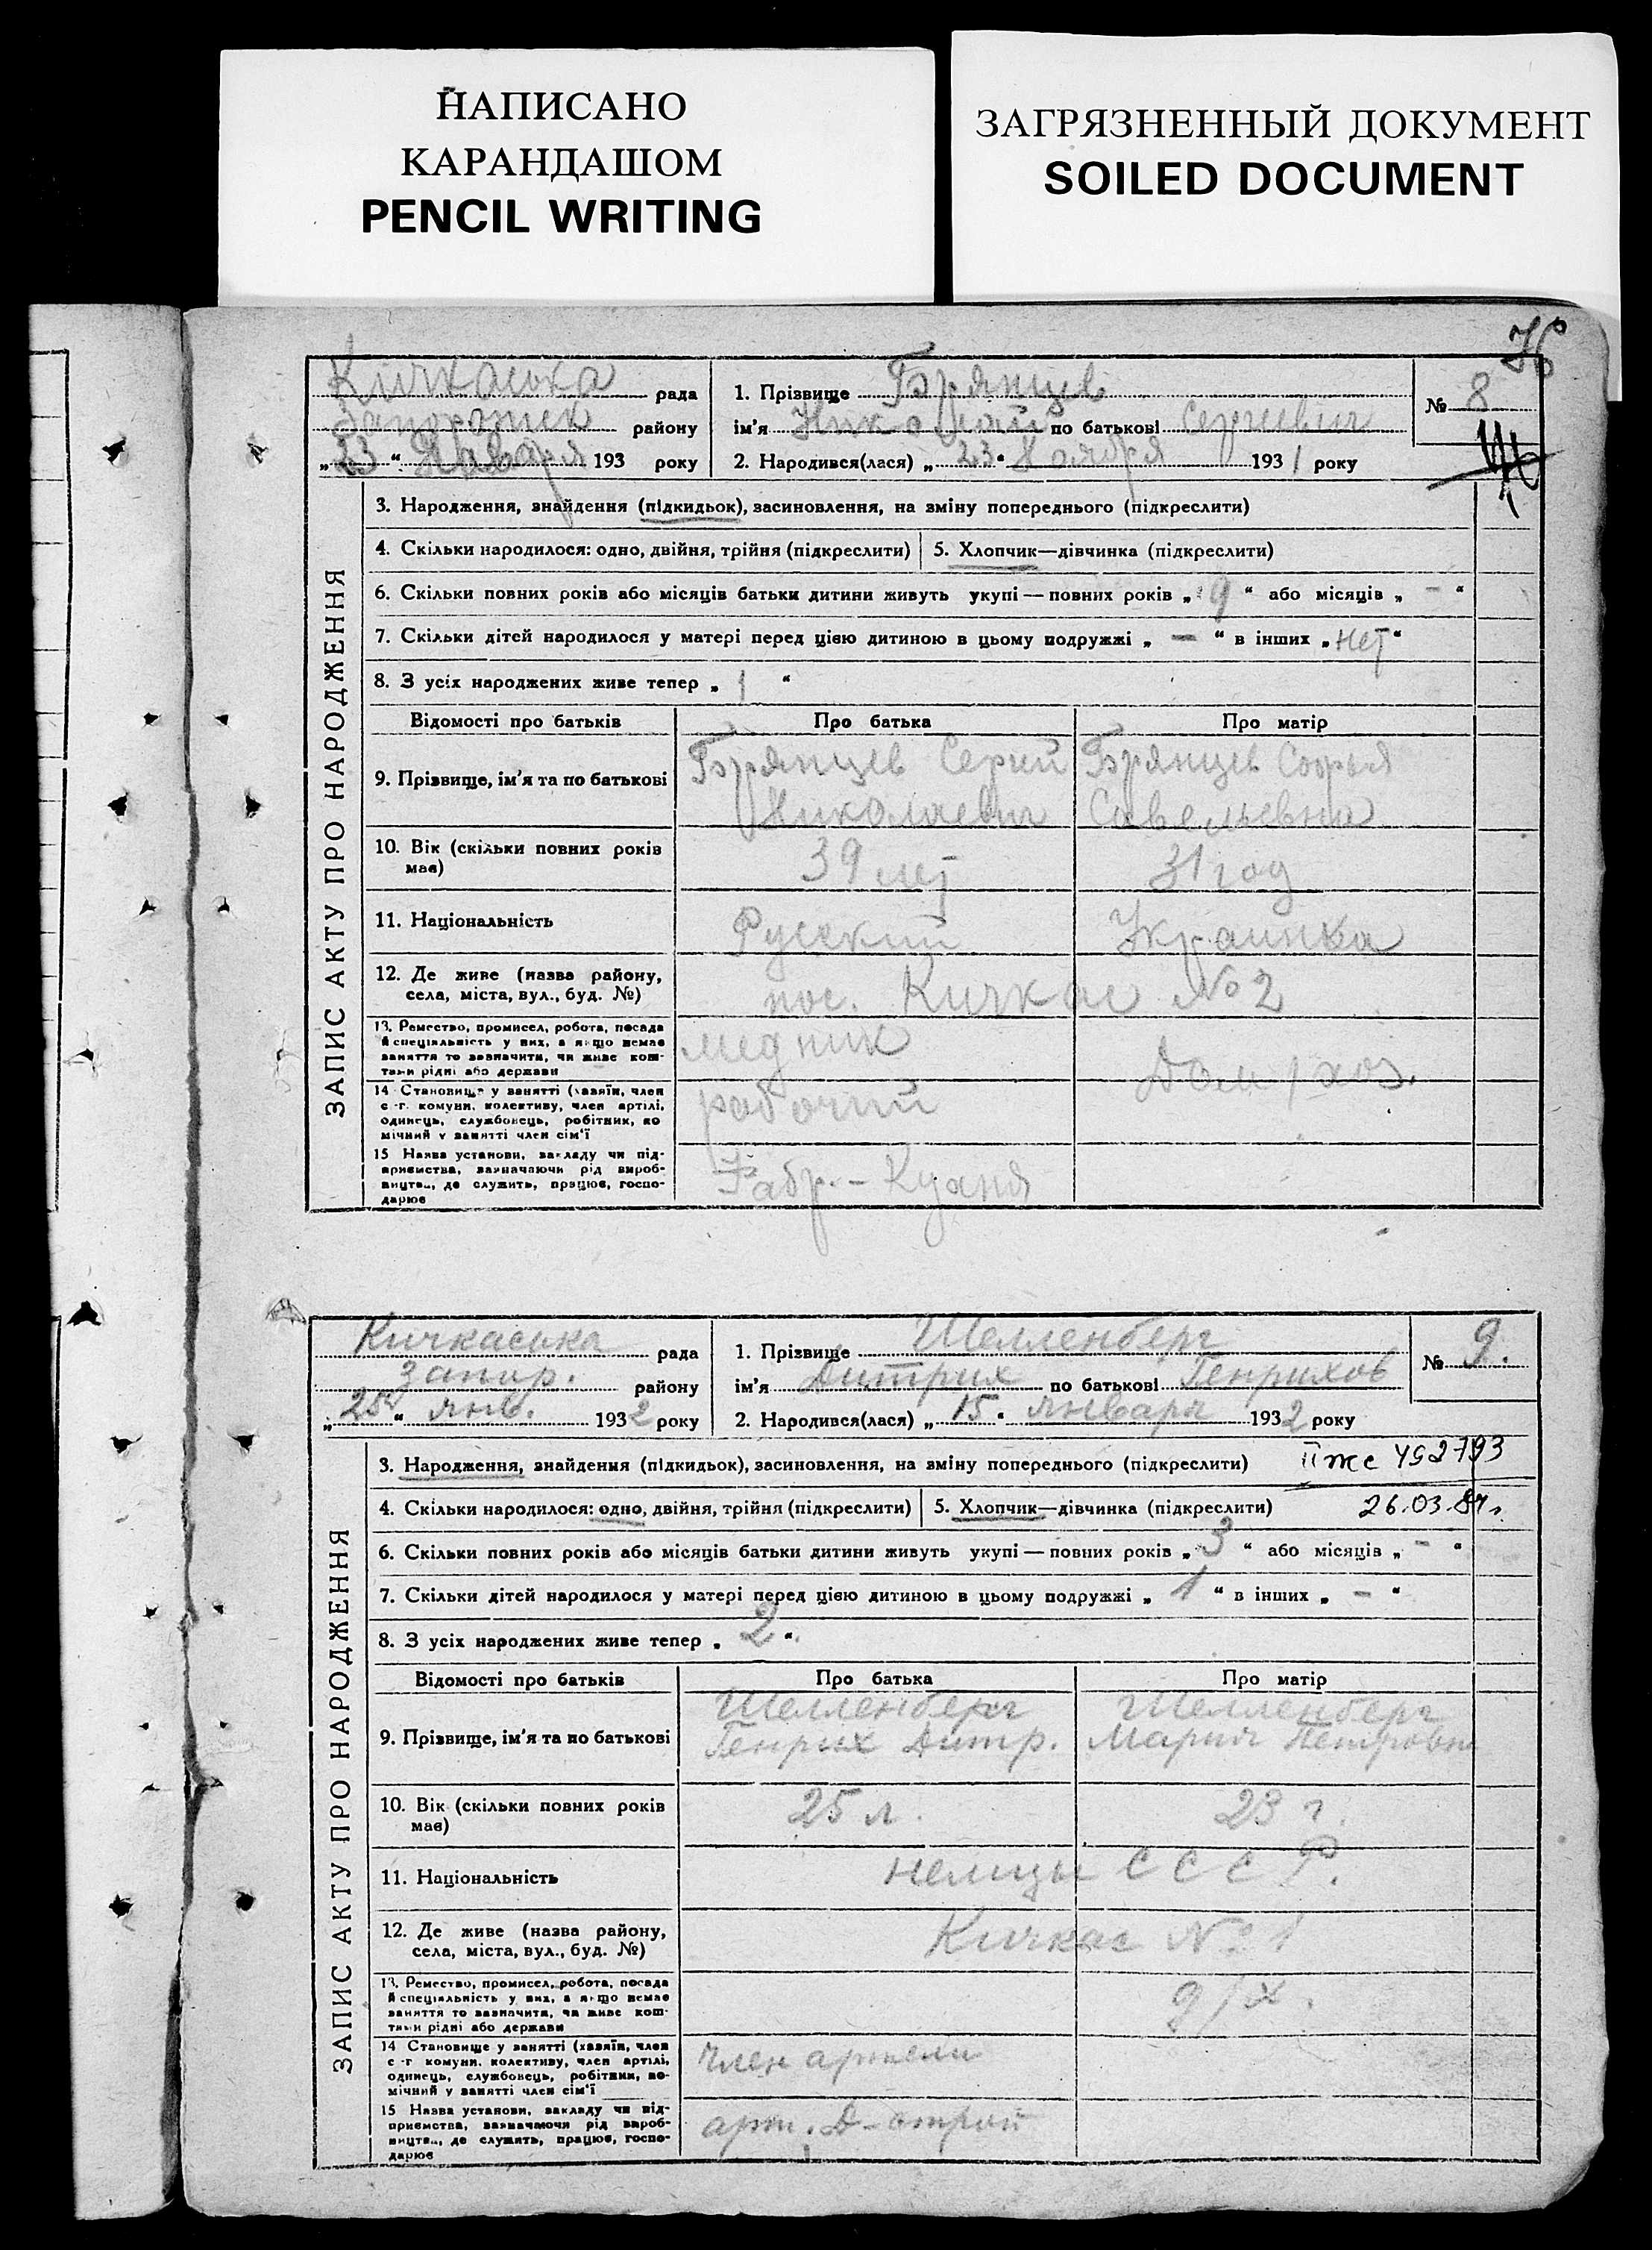 НАПИСАНО
КАРАНДАШОМ
PENCIL WRITING
ЗАГРЯЗНЕННЫЙ ДОКУМЕНТ
SOILED DOCUMENT
Кичкаська рада
район
„23“ Января 193 року
1. Прізвище Брянцев
ім'я Николай по батькові Сергиевич
2. Народився(лася) „23“ Ноября 1931 року
№ 8
ЗАПИС АКТУ ПРО НАРОДЖЕННЯ
3. Народження, знайдення (підкидьок), засиновлення, на зміну попереднього (підкреслити)
4. Скільки народилося: одно, двійня, трійня (підкреслити) 5. Хлопчик—дівчинка (підкреслити)
6. Скільки повних років або місяців батьки дитини живуть укупі — повних років „9“ або місяців „–“
7. Скільки дітей народилося у матері перед цією дитиною в цьому подружжі „–“ в інших „нет“
8. З усіх народжених живе тепер „1“
Відомості про батьків Про батька Про матір
9. Прізвище, ім'я та по батькові Брянцев Сергий Брянцев Софья
Николаевич Савельевна
10. Вік (скільки повних років має) 39 лет 31 год
11. Національність Русский Украинка
12. Де живе (назва району, села, міста, вул., буд. №) пос. Кичкас №2
13. Ремество, промисел, робота, посада й спеціяльність у них, а якщо немає заняття то зазначити, чи живе коштами рідні або держави медник Дом/хоз.
14 Становище у занятті (хазяїн, член с.-г. комуни, колективу, член артілі, одинець, службовець, робітник, помічний у занятті член сім'ї рабочий
15 Назва установи, закладу чи підприємства, зазначаючи рід виробництва, де служить, працює, господарює Фабр.-Кухня
Кичкаська рада
Запор. району
„25“ янв. 1932 року
1. Прізвище Шелленберг
ім'я Дитрих по батькові Генрихов
2. Народився(лася) „15“ января 1932 року
№ 9.
ЗАПИС АКТУ ПРО НАРОДЖЕННЯ
3. Народження, знайдення (підкидьок), засиновлення, на зміну попереднього (підкреслити) II жс 492793
4. Скільки народилося: одно, двійня, трійня (підкреслити) 5. Хлопчик—дівчинка (підкреслити) 26.03.87г.
6. Скільки повних років або місяців батьки дитини живуть укупі — повних років „3“ або місяців „–“
7. Скільки дітей народилося у матері перед цією дитиною в цьому подружжі „1“ в інших „–“
8. З усіх народжених живе тепер „2“.
Відомості про батьків Про батька Про матір
9. Прізвище, ім'я та по батькові Шелленберг Шелленберг
Генрих Дитр. Мария Петровна
10. Вік (скільки повних років має) 25 л. 23 г.
11. Національність немцы СССР.
12. Де живе (назва району, села, міста, вул., буд. №) Кичкас № 1
13. Ремество, промисел, робота, посада й спеціяльність у них, а якщо немає заняття то зазначити, чи живе коштами рідні або держави д/х.
14 Становище у занятті (хазяїн, член с.-г. комуни, колективу, член артілі, одинець, службовець, робітник, помічний у занятті член сім'ї член артели
15 Назва установи, закладу чи підприємства, зазначаючи рід виробництва, де служить, працює, господарює арт. Д-строй